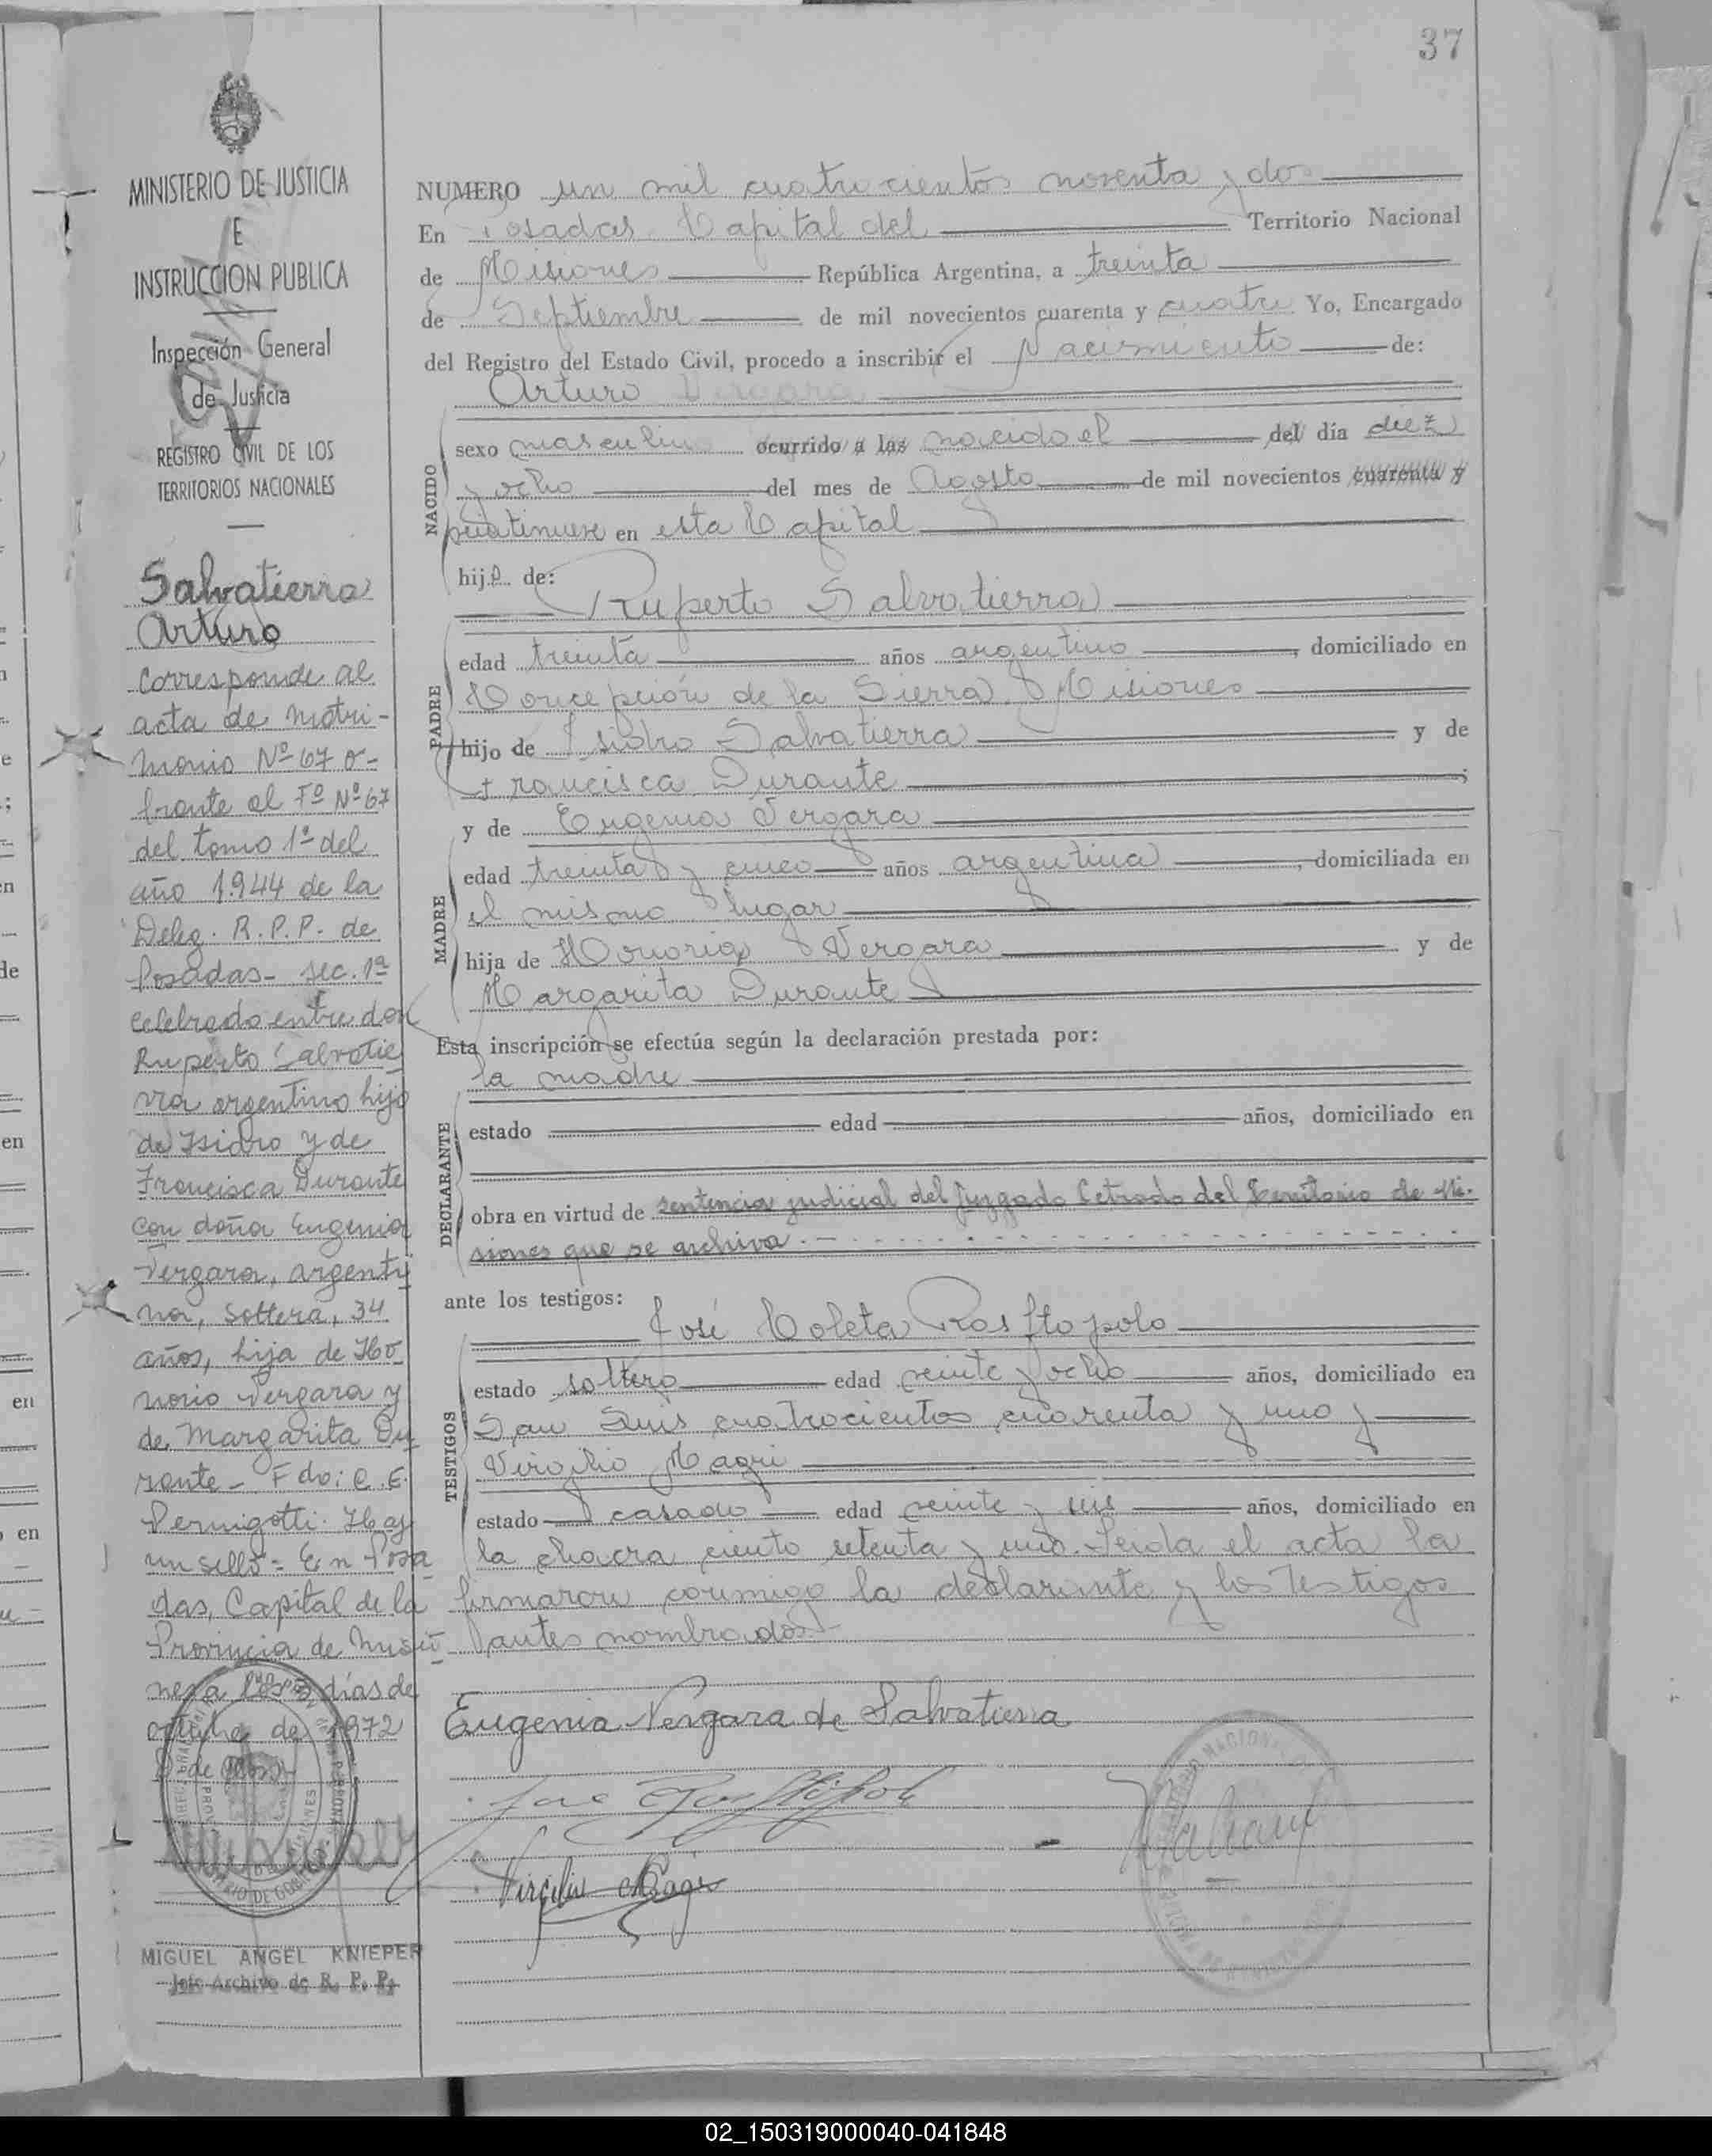 37
MINISTERIO DE JUSTICIA
E
INSTRUCCION PUBLICA
Inspección General
de Justicia
REGISTRO CIVIL DE LOS
TERRITORIOS NACIONALES
Salvatierra
Arturo
Corresponde al
acta de matri-
monio Nº 67 o-
brante al Fº Nº 67
del tomo 1º del
año 1.944 de la
Deleg. R.P.P. de
Posadas - sec. 1ª
celebrado entre don
Ruperto Salvatie
rra argentino hijo
de Isidro y de
Francisca Durante
con doña Eugenia
Vergara, argenti
na, soltera, 34
años, hija de Ho
norio Vergara y
de Margarita Du
rante - Fdo: C.E.
Pernigotti. Hay
un sello = En Posa
das, Capital de la
Provincia de Misio
nes a los días de
octubre de 1972
MIGUEL ANGEL KNIEPER
Jefe Archivo de R. P. P.
NUMERO un mil cuatrocientos noventa y dos
En Posadas Capital del Territorio Nacional
de Misiones República Argentina, a treinta
de Septiembre de mil novecientos cuarenta y cuatro Yo, Encargado
del Registro del Estado Civil, procedo a inscribir el Nacimiento de:
Arturo Vergara
NACIDO
sexo masculino ocurrido a las nacido el del día diez
y ocho del mes de Agosto de mil novecientos cuarenta y
treintinueve en esta Capital
hijo de:
Ruperto Salvatierra
PADRE
edad treinta años argentino, domiciliado en
Concepción de la Sierra, Misiones
hijo de Isidro Salvatierra y de
Francisca Durante;
y de Eugenia Vergara
MADRE
edad treinta y cinco años argentina, domiciliada en
el mismo lugar
hija de Honorio Vergara y de
Margarita Durante
Esta inscripción se efectúa según la declaración prestada por:
la madre
DECLARANTE
estado edad años, domiciliado en
obra en virtud de sentencia judicial del Juzgado Letrado del Territorio de Mi-
siones que se archiva.
ante los testigos:
José Coleta Rosftopolo
TESTIGOS
estado soltero edad veinte y ocho años, domiciliado en
San Luis cuatrocientos cuarenta y uno y
Virgilio Magri
estado casado edad veinte y seis años, domiciliado en
la chacra ciento setenta y uno. Leida el acta la
firmaron conmigo la declarante y los testigos
antes nombrados
Eugenia Vergara de Salvatierra
Virgilio Magri
02_150319000040-041848